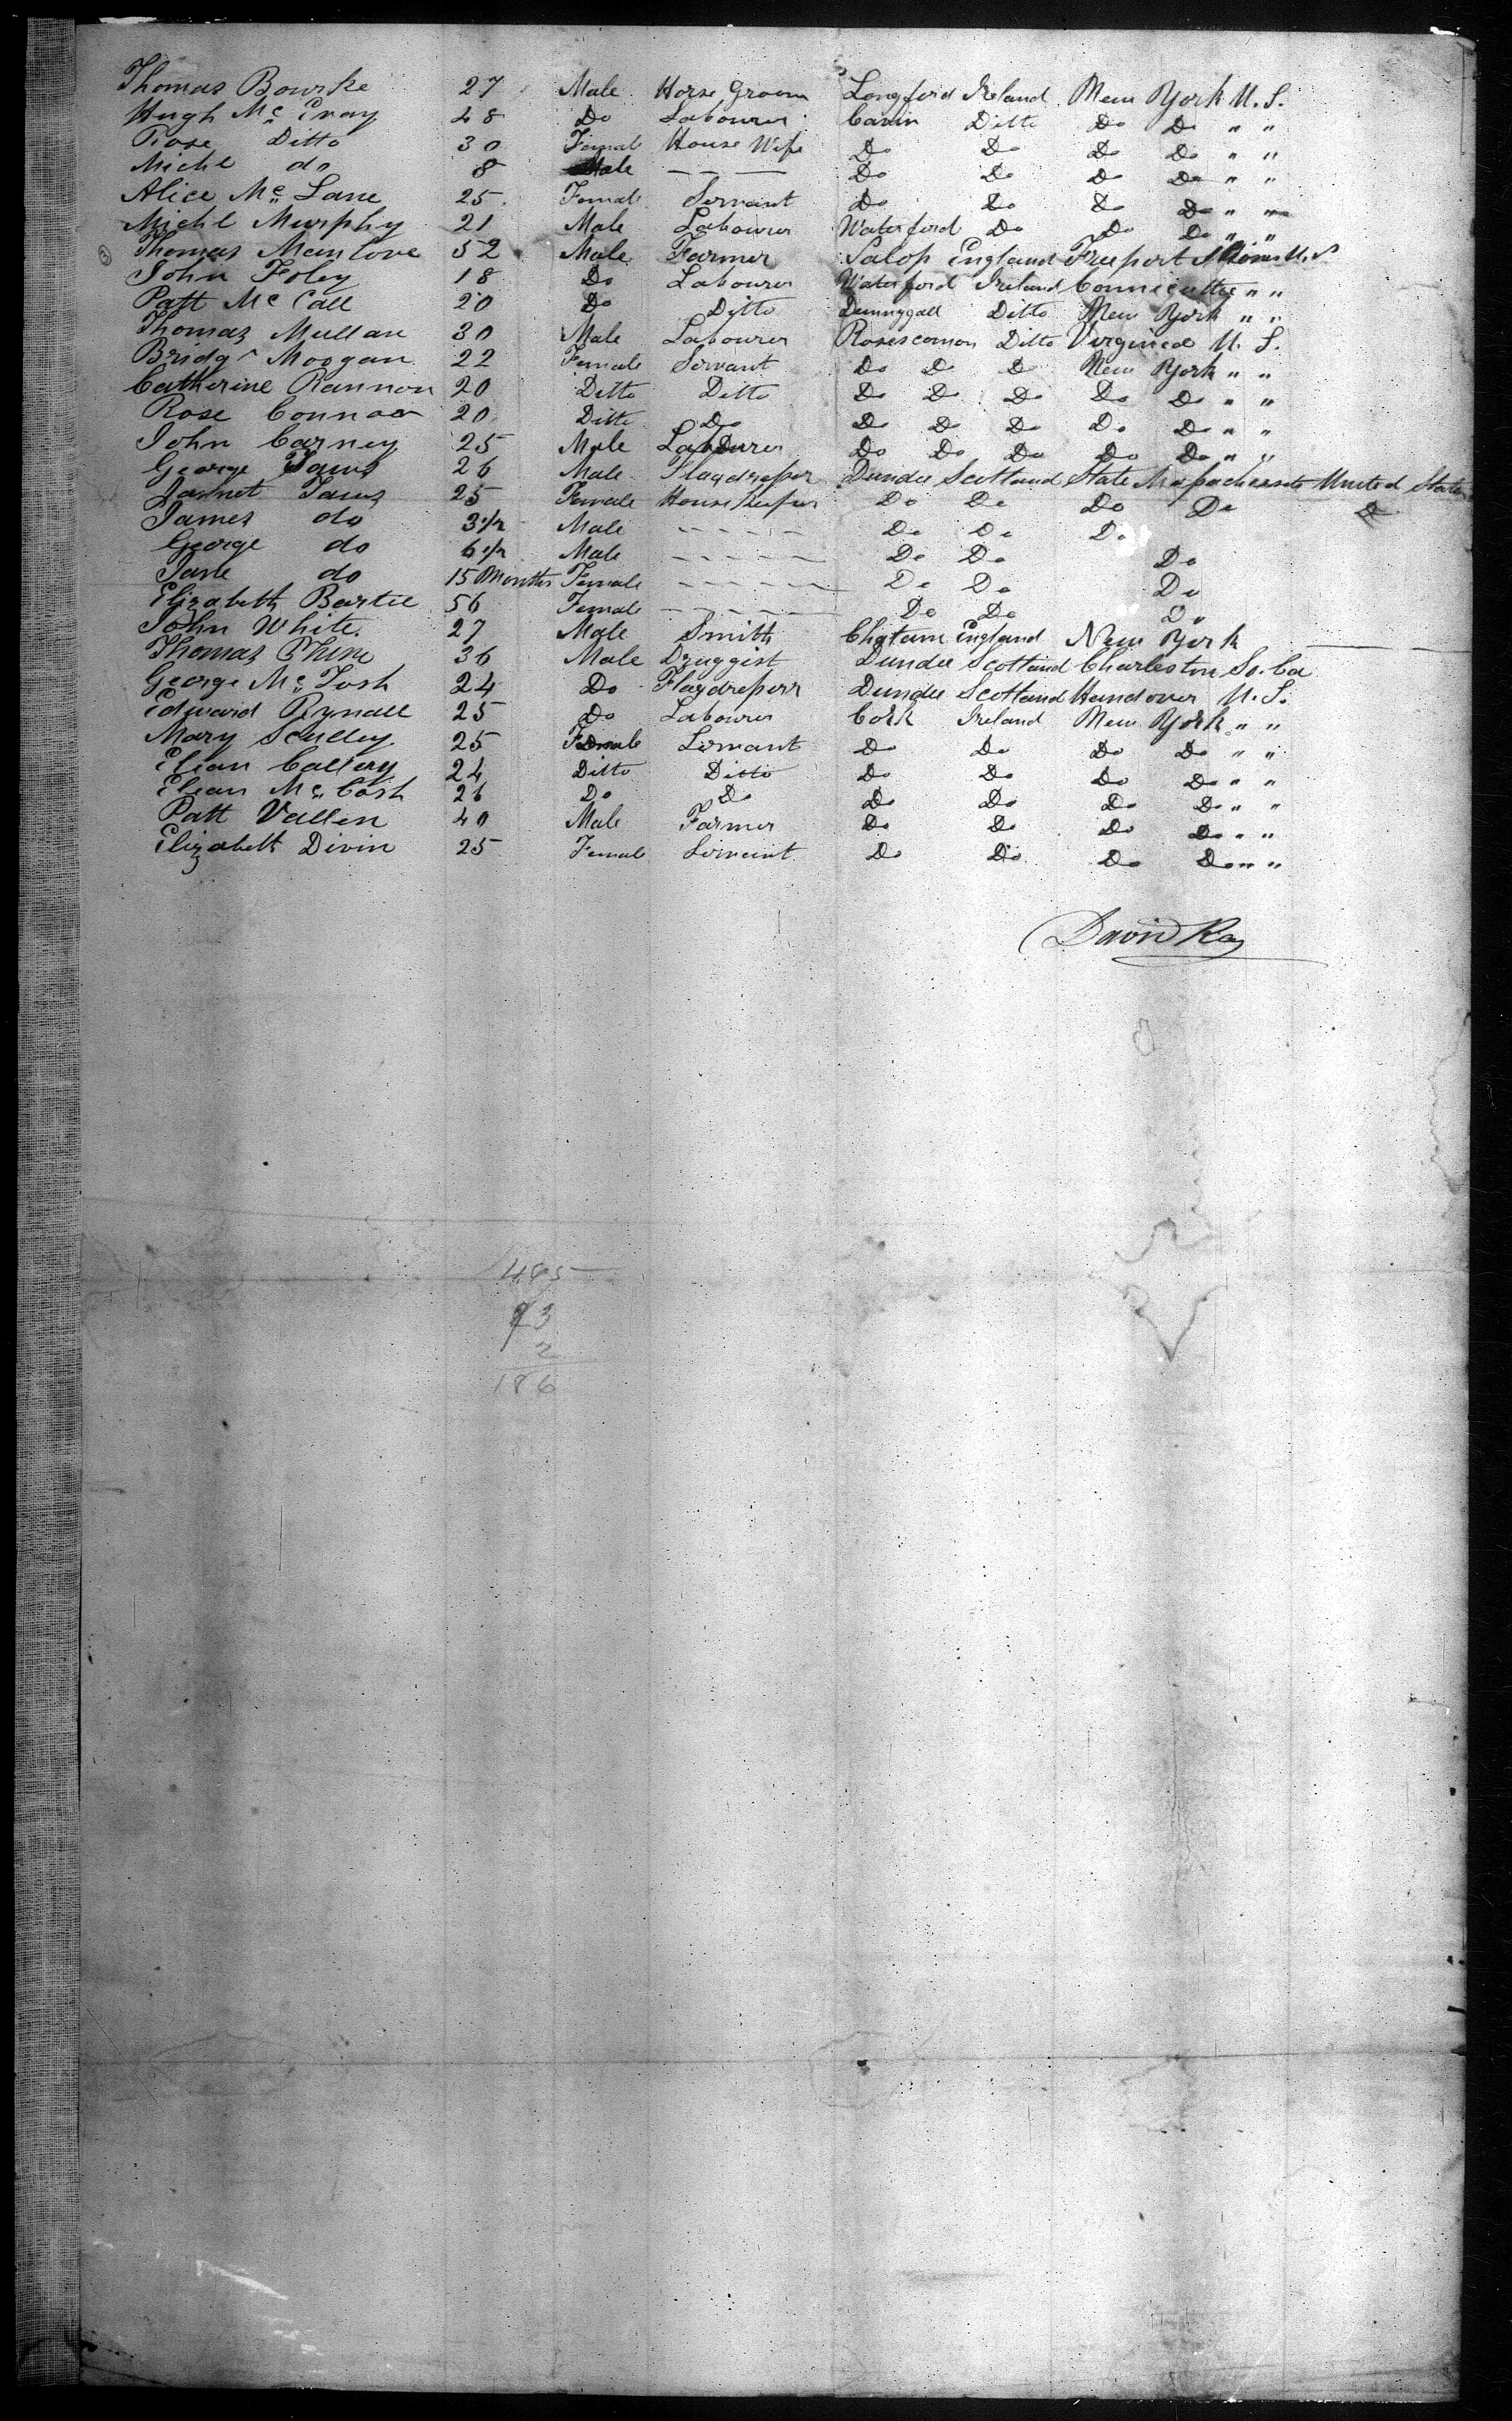 Thomas Bourke 27 Male Horse Groom Longford Ireland New York U. S.
Hugh Mc Enay 48 Do Labourer Cavin Ditto Do Do " "
Rose Ditto 30 Female House Wife Do Do Do Do " "
Michl do 8 Male — — — Do Do Do Do " "
Alice Mc Lane 25 Female Servant Do Do Do Do " "
Michl Murphy 21 Male Labourer Waterford Do Do Do " "
③ Thomas Manlove 52 Male Farmer Salop England Freeport U. S
John Foley 18 Do Labourer Waterford Ireland " "
Patt Mc Call 20 Do Ditto Dunnygall Ditto New York " "
Thomas Mullan 30 Male Labourer Rosescomon Ditto Virginea U. S.
Bridgt Moogan 22 Female Servant Do Do Do New York " "
Catherine Rannon 20 Ditto Ditto Do Do Do Do Do " "
Rose Connoor 20 Ditto Do Do Do Do Do Do " "
John Carney 25 Male Labourer Do Do Do Do Do " "
George 26 Male Flagdresser Dundee Scotland State Massachessets United State
25 Female House Do Do Do Do Do
James do 3 yr Male - - - - - Do Do Do
George do 6 yr Male - - - - - Do Do Do
Jane do 15 Months Female - - - - - Do Do Do
Elizabeth Bartie 56 Female - - - - - Do Do Do
John White. 27 Male Smith Chatam England New York
Thomas 36 Male Druggist Dundee Scotland Charleston So. Ca
George Mc Tosh 24 Do Flagdresser Dundee Scotland Handover U. S.
Edward Rynall 25 Do Labourer Cork Ireland New York " "
Mary Sculley 25 Female Servant Do Do Do Do " "
Elean Callery 24 Ditto Ditto Do Do Do Do " "
Elean Mc Cosh 26 Do Do Do Do Do Do " "
Patt Vallen 40 Male Farmer Do Do Do Do " "
Elizabeth Divin 25 Female Servant Do Do Do Do " "
David Kay
485
93
2
186